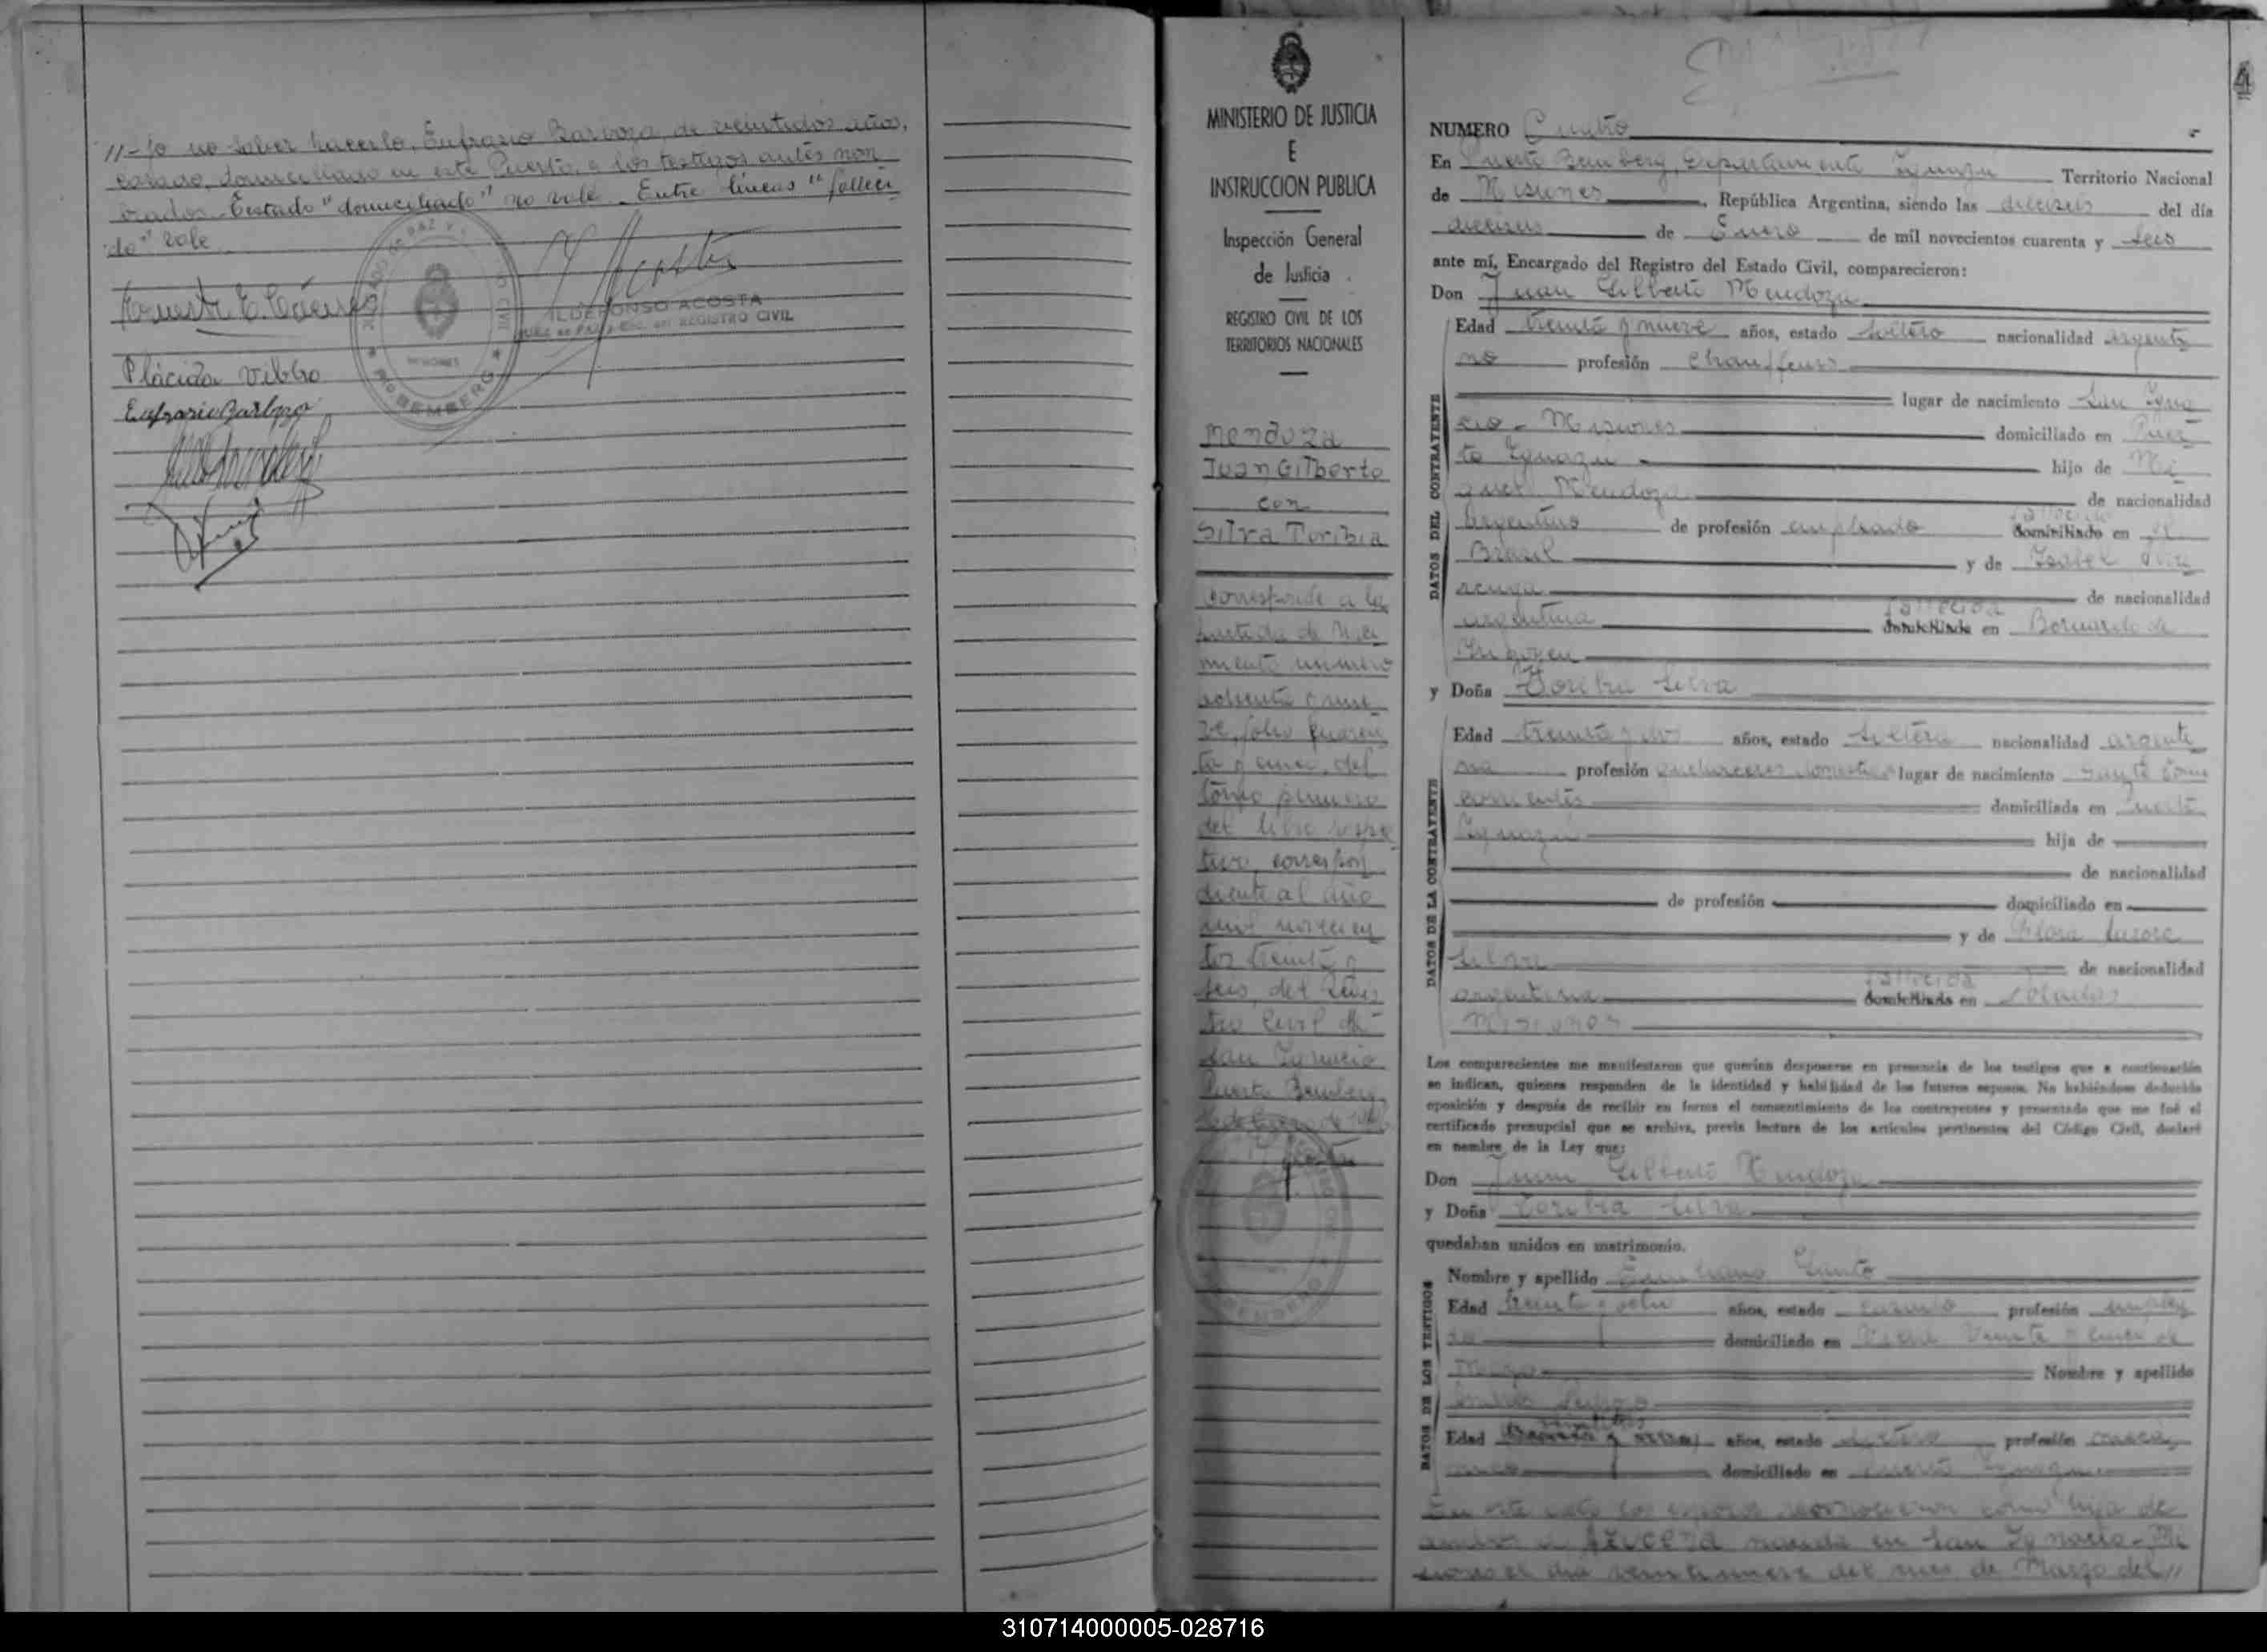 //-jo no saber hacerlo, Eufrasio Barboza, de veintidos años,
casado, domiciliado en este Puerto, a los testigos antes nom
brados. Testado "domiciliado" no vale. Entre líneas "falleci
do" vale
ILDEFONSO ACOSTA
REGISTRO CIVIL
Plácida
Eufrasio Barboza
BEMBERG
MISIONES
MINISTERIO DE JUSTICIA
E
INSTRUCCION PUBLICA
Inspección General
de Justicia
REGISTRO CIVIL DE LOS
TERRITORIOS NACIONALES
Mendoza
Juan Gilberto
con
Silva Toribia
corresponde a la
partida de naci
miento número
ochenta y nue
ve, folio cuaren
ta y cinco, del
tomo primero
del libro respec
tivo, correspon
diente al año
mil novecien
tos treinta y
seis, del Regis
tro Civil de
San Ignacio
Puerto Bemberg,
4
NUMERO Cuatro
En Puerto Bemberg, Departamento Iguazú Territorio Nacional
de Misiones, República Argentina, siendo las dieciseis del día
dieciseis de Enero de mil novecientos cuarenta y seis
ante mí, Encargado del Registro del Estado Civil, comparecieron:
Don Juan Gilberto Mendoza
DATOS DEL CONTRAYENTE
Edad treinta y nueve años, estado soltero nacionalidad argenti
no profesión chauffeurs
lugar de nacimiento San Igna
cio - Misiones domiciliado en Puer
to Iguazu hijo de Mi
guel Mendoza de nacionalidad
fallecido
argentino de profesión empleado domiciliado en el
Brasil y de Isabel
de nacionalidad
fallecida
argentina domiciliada en Bernardo de
Irigoyen
y Doña Toribia Silva
DATOS DE LA CONTRAYENTE
Edad treinta y dos años, estado soltera nacionalidad argenti
na profesión quehaceres domesticos lugar de nacimiento Santo Tome
corrientes domiciliada en Puerto
Iguazú hija de
de nacionalidad
de profesión domiciliado en
y de Flora
Silva de nacionalidad
fallecida
argentina domiciliada en Posadas
Misiones
Los comparecientes me manifestaron que querían desposarse en presencia de los testigos que a continuación
se indican, quienes responden de la identidad y habilidad de los futuros esposos. No habiéndose deducido
oposición y después de recibir en forma el consentimiento de los contrayentes y presentado que me fué el
certificado prenupcial que se archiva, previa lectura de los artículos pertinentes del Código Civil, declaré
en nombre de la Ley que:
Don Juan Gilberto Mendoza
y Doña Toribia Silva
quedaban unidos en matrimonio.
DATOS DE LOS TESTIGOS
Nombre y apellido
Edad treinta y ocho años, estado casado profesión emplea
do domiciliado en Veinte y cinco de
Mayo Nombre y apellido
Edad años, estado soltero profesión
domiciliado en Puerto Iguazu
En este acto los esposos reconocieron como hija de
ambos a Azucena nacida en San Ignacio - Mi
siones el dia veintinueve del mes de Marzo del//
310714000005-028716